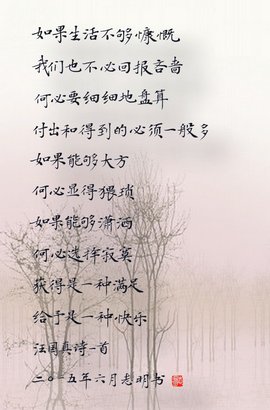 如果生活不够慷慨
我们也不必回报吝啬
何必要细细地盘算
付出和得到的必须一般多
如果能够大方
何必显得猥琐
如果能够潇洒
何必选择寂寞
获得是一种满足
给予是一种快乐
汪国真诗一首
二〇一五年六月志明书